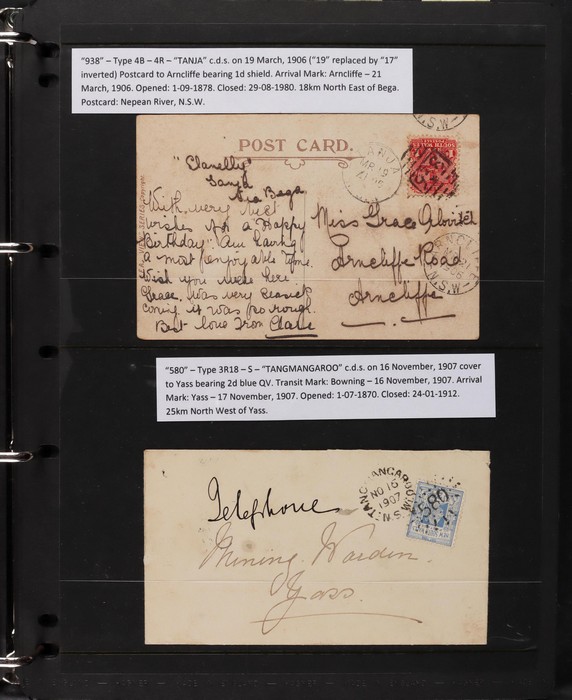 "938" – Type 4B – 4R – "TANJA" c.d.s. on 19 March, 1906 ("19" replaced by "17"
inverted) Postcard to Arncliffe bearing 1d shield. Arrival Mark: Arncliffe – 21
March, 1906. Opened: 1-09-1878. Closed: 29-08-1980. 18km North East of Bega.
Postcard: Nepean River, N.S.W.
N.S.W
POST CARD.
"Clanelly"
Tanja
Via Bega
With very best
wishes for a Happy
Birthday. Am having
a most enjoyable time.
Wish you were here.
Grace was very seasick
coming it was so rough.
Best love from Clare
Miss Grace
Arncliffe Road
Arncliffe
"580" – Type 3R18 – S – "TANGMANGAROO" c.d.s. on 16 November, 1907 cover
to Yass bearing 2d blue QV. Transit Mark: Bowning – 16 November, 1907. Arrival
Mark: Yass – 17 November, 1907. Opened: 1-07-1870. Closed: 24-01-1912.
25km North West of Yass.
TANGMANGAROO
NO 16
1907
N.S.W
580
Telephone
Mining Warden.
Yass.